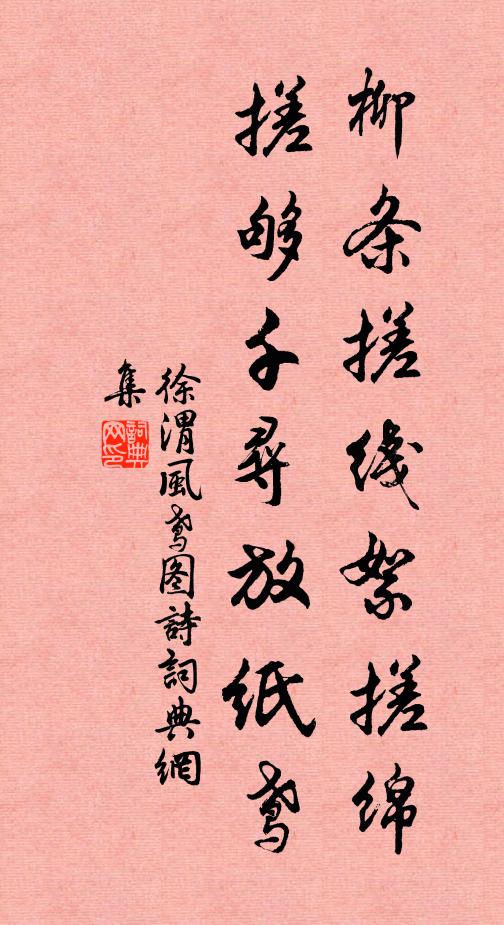 柳条搓线絮搓绵
搓够千尋放纸鸢
徐渭風鸢图詩詞典網
集
詞典
网印